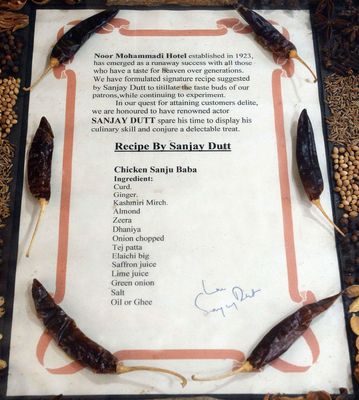 Noor Mohammadi Hotel established in 1923,
has emerged as a runaway success with all those
who have a taste for heaven over generations.
We have formulated signature recipe suggested
by Sanjay Dutt to titillate the taste buds of our
patrons,while continuing to experiment.
In our quest for attaining customers delite,
we are honoured to have renowned actor
SANJAY DUTT spare his time to display his
culinary skill and conjure a delectable treat.
Recipe By Sanjay Dutt
Chicken Sanju Baba
Ingredient:
Curd.
Ginger.
Kashmiri Mirch.
Almond
Zeera
Dhaniya
Onion chopped
Tej patta
Elaichi big
Saffron juice
Lime juice
Green onion
Salt
Oil or Ghee
Sanjay Dutt